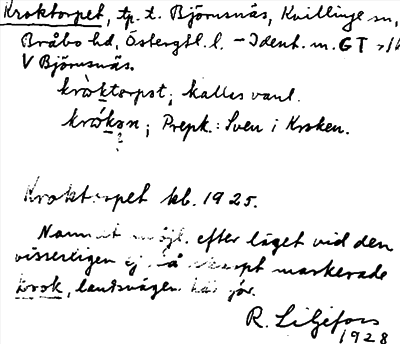 Kroktorpet, tp. t. Björnsnäs, Kvillinge sn,
Bråbo hd, Östergtl. l. – Ident. m. GT
V Björnsnäs.
kròktorpət; kallas vanl.
krókən; Prepk.: Sven i Kroken.
?
Kroktorpet kb. 1925.
Namnet möjl. efter läget vid den
visserligen ej så skarpt markerade
krok, landsvägen här gör.
R. Liljefors
1928